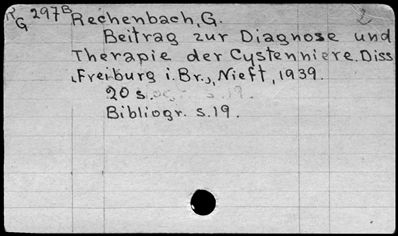 RG 297B Rechenbach, G. 2
Beitrag zur Diagnose und
Therapie der Cystenniere. Diss
Freiburg i. Br., Nieft, 1939.
20 s.
Bibliogr. s. 19.